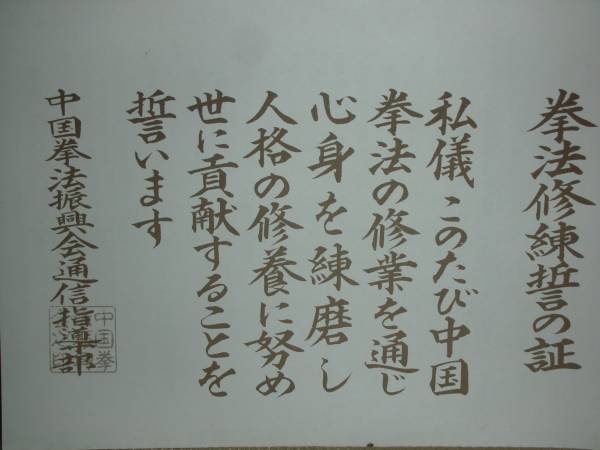 拳法修練誓の証
私儀 このたび中国
拳法の修業を通じ
心身を練磨し
人格の修養に努め
世に貢献することを
誓います
中国拳法振興会通信指導部
中国拳